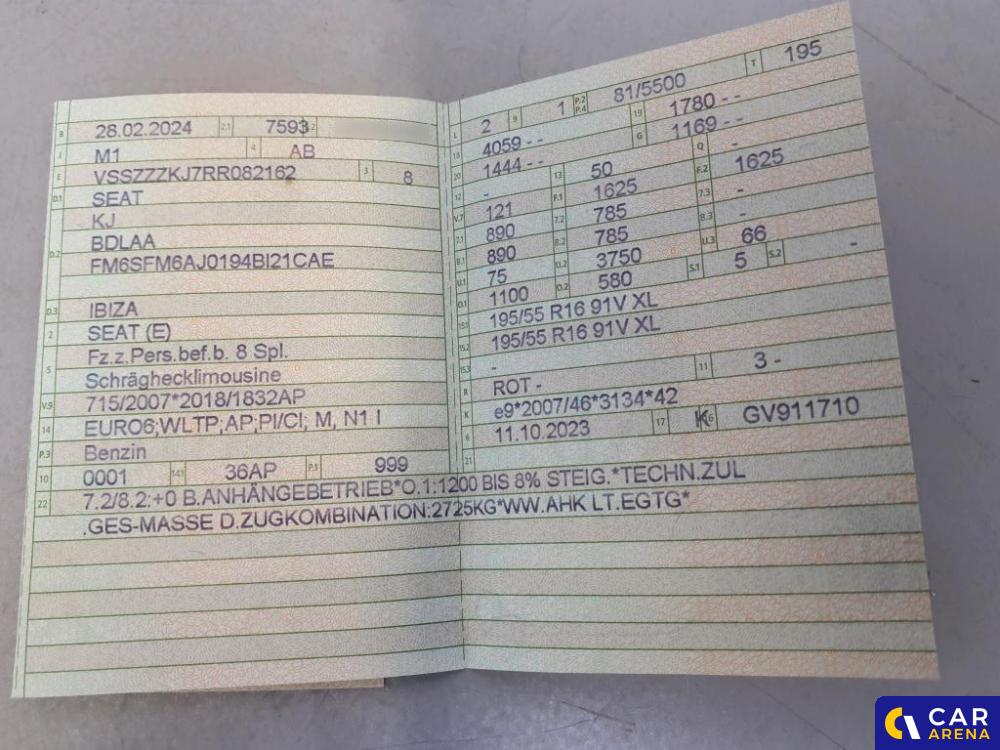 B 28.02.2024 2.1 7593 2.2
J M1 4 AB
E VSSZZZKJ7RR082162 3 8
D.1 SEAT
KJ
D.2 BDLAA
FM6SFM6AJ0194BI21CAE
D.3 IBIZA
2 SEAT (E)
5 Fz.z.Pers.bef.b. 8 Spl.
Schräghecklimousine
V.9 715/2007*2018/1832AP
14 EURO6;WLTP;AP;PI/CI; M, N1 I
P.3 Benzin
10 0001 14.1 36AP P.1 999
L 2 9 1 P.2 P.4 81/5500 T 195
18 4059 - - 19 1780 - -
20 1444 - - G 1169 - -
12 - 13 50 Q -
V.7 121 F.1 1625 F.2 1625
7.1 890 7.2 785 7.3 -
8.1 890 8.2 785 8.3 -
U.1 75 U.2 3750 U.3 66
O.1 1100 O.2 580 S.1 5 S.2 -
15.1 195/55 R16 91V XL
15.2 195/55 R16 91V XL
15.3 -
R ROT - 11 3 -
K e9*2007/46*3134*42
6 11.10.2023 17 K 16 GV911710
21
22 7.2/8.2:+0 B.ANHÄNGEBETRIEB*O.1:1200 BIS 8% STEIG.*TECHN.ZUL
.GES-MASSE D.ZUGKOMBINATION:2725KG*WW.AHK LT.EGTG*
CAR
ARENA